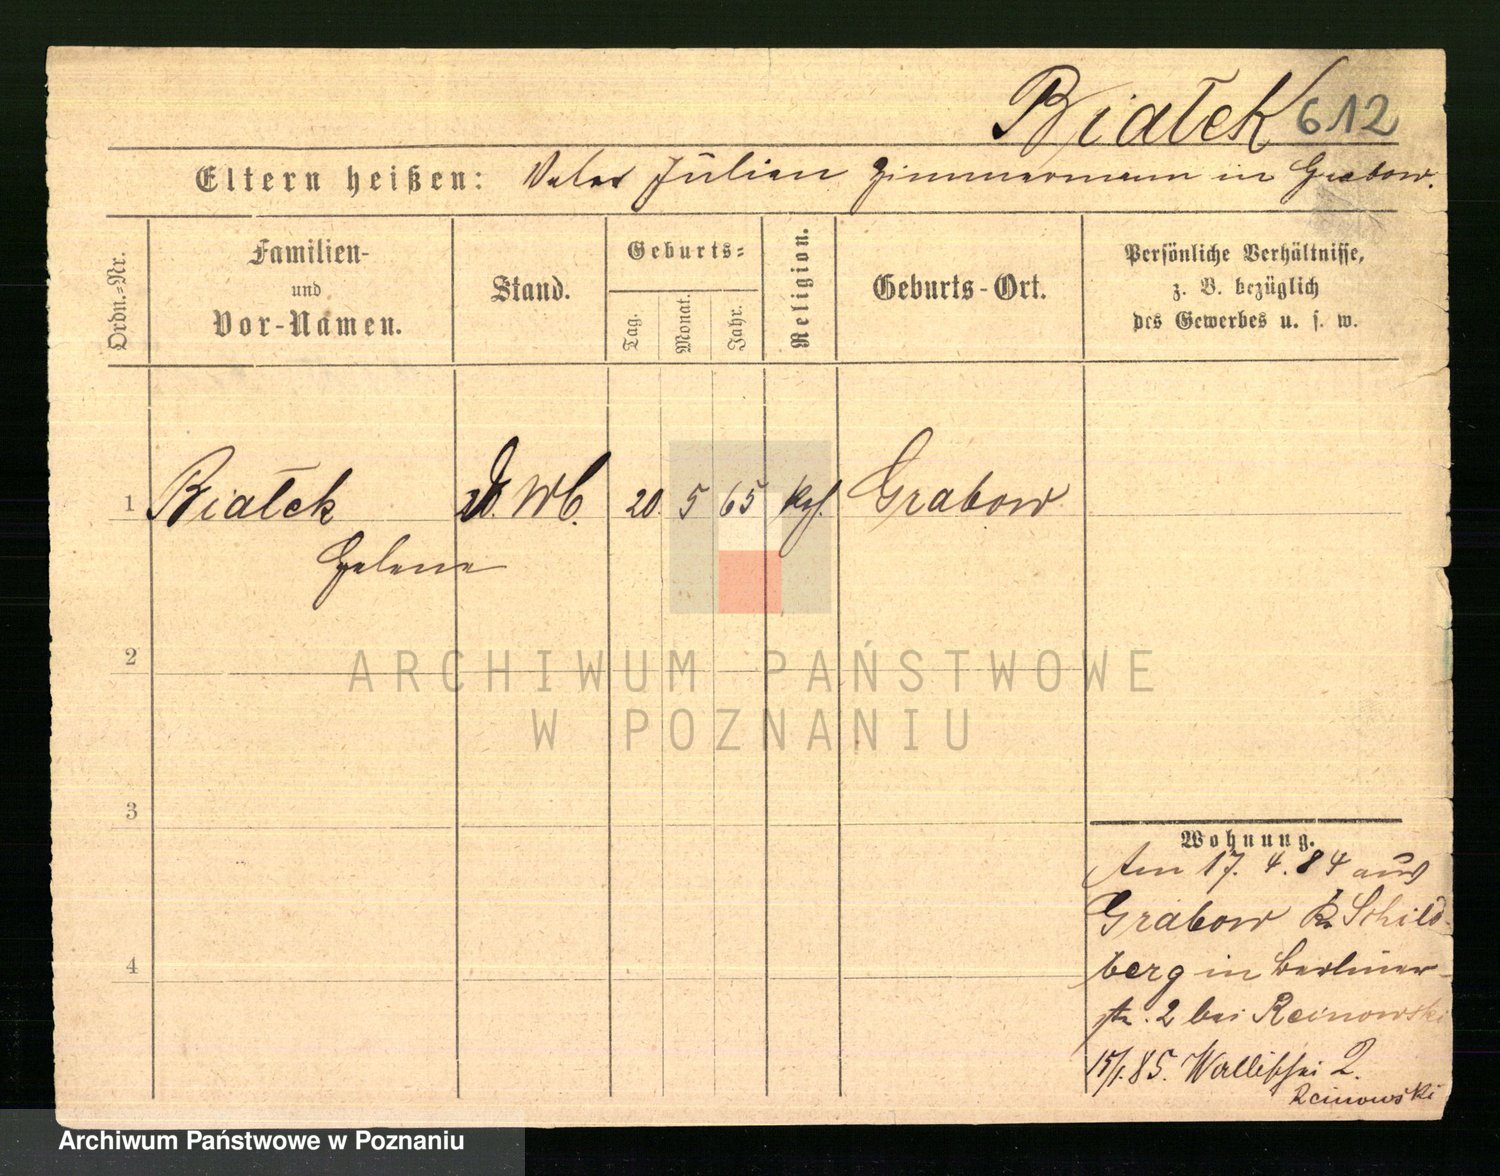 Białek 612
Eltern heißen: Vater Julian Zimmermann in Grabow.
Ordn.=Nr.
Familien-
und
Vor-Namen.
Stand.
Geburts=
Tag.
Monat.
Jahr.
Religion.
Geburts-Ort.
Persönliche Verhältnisse,
z. B. bezüglich
des Gewerbes u. s. w.
1 Białek 20. 5 65 Grabow
Helene
2
ARCHIWUM PAŃSTWOWE
W POZNANIU
3
4
Wohnung.
Am 17. 4. 84 aus
Grabow Kr Schild-
berg in Berliner-
str. 2 bei Reinowski
15/1. 85. Wallischei 2.
Reinowski
Archiwum Państwowe w Poznaniu